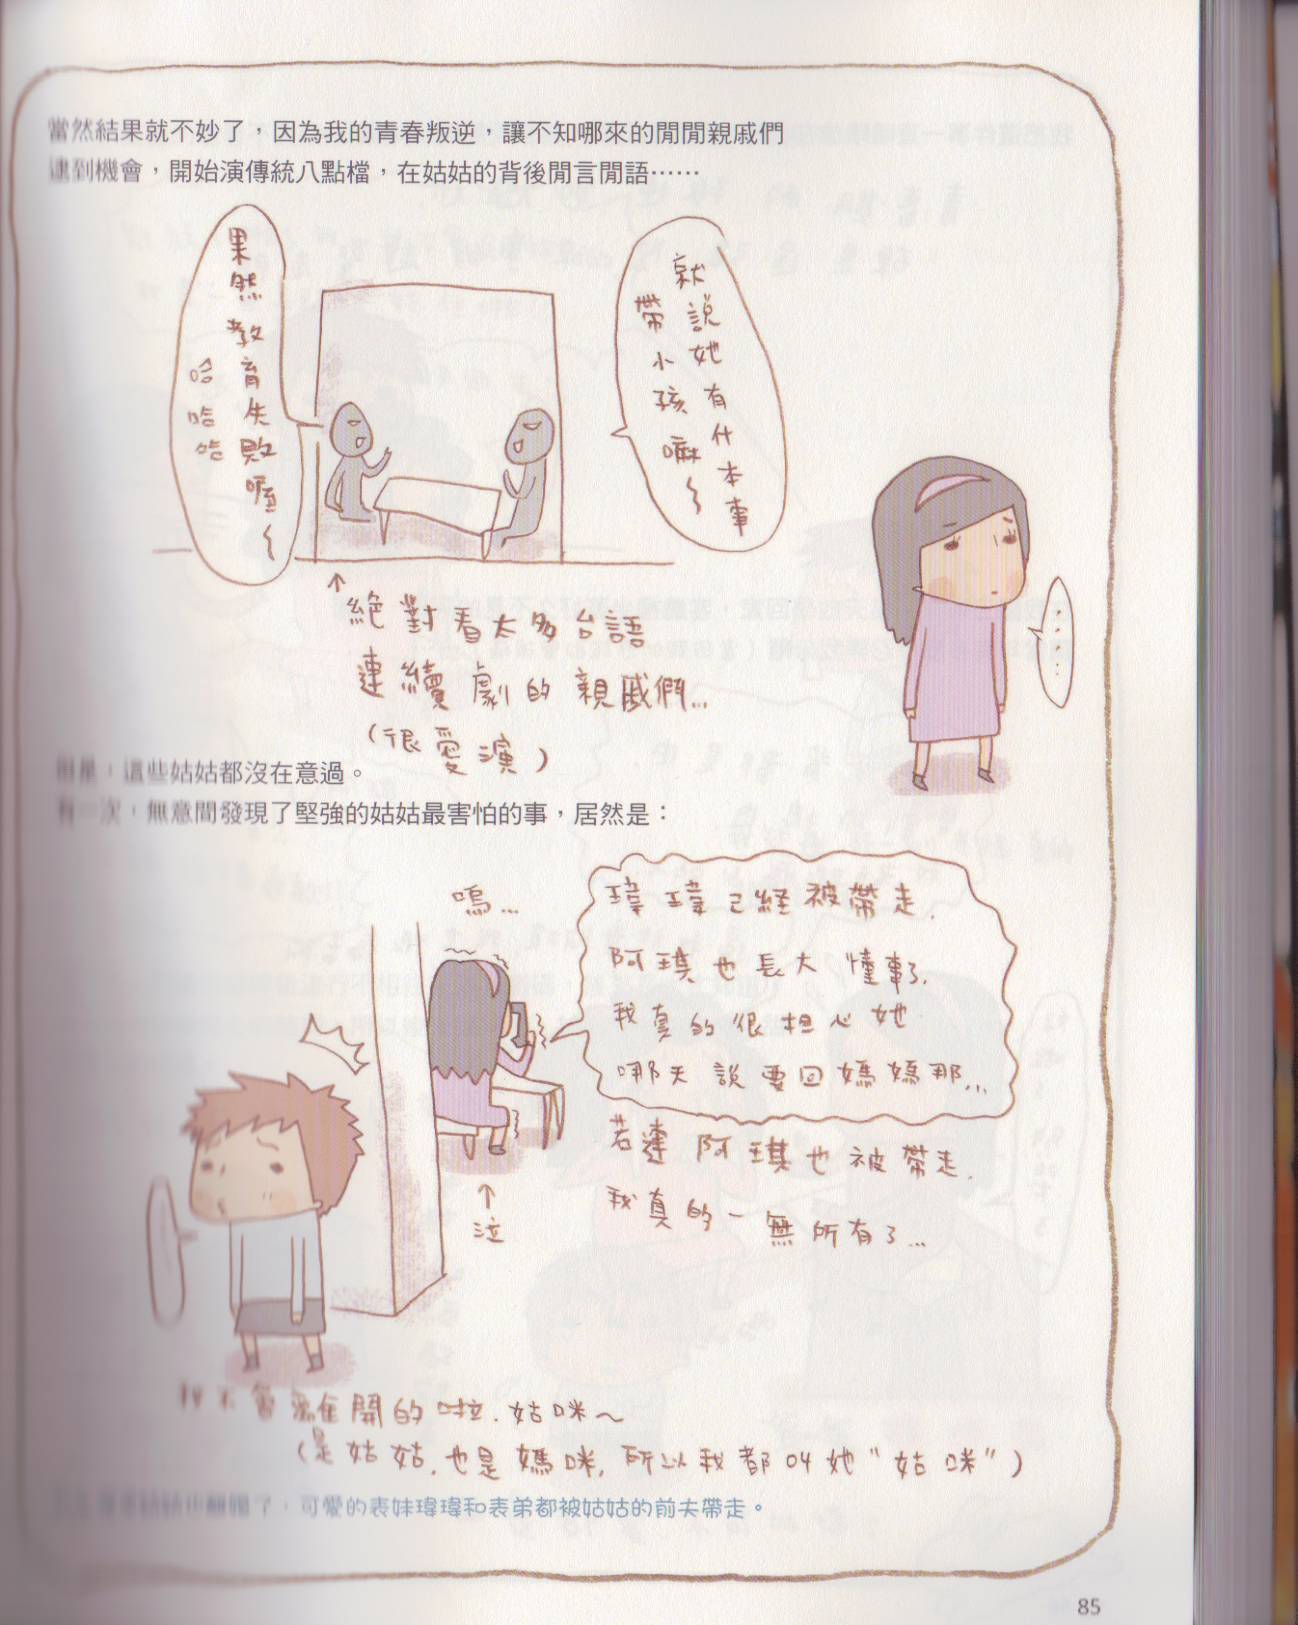 當然結果就不妙了，因為我的青春叛逆，讓不知哪來的閒閒親戚們
逮到機會，開始演傳統八點檔，在姑姑的背後閒言閒語⋯⋯
果然教育失敗喔~
哈哈哈
就說她有什本事
帶小孩嘛~
↑
絕對看太多台語
連續劇的親戚們...
(很愛演)
......
但是，這些姑姑都沒在意過。
有一次，無意間發現了堅強的姑姑最害怕的事，居然是：
嗚...
瑋瑋已経被帶走.
阿琪也長大懂事了.
我真的很担心她
哪天說要回媽媽那...
若連阿琪也被帶走.
我真的一無所有了...
↑
泣
我不會離開的啦.姑咪~
(是姑姑.也是媽咪,所以我都叫她"姑咪")
了，可愛的表妹瑋瑋和表弟都被姑姑的前夫帶走。
85